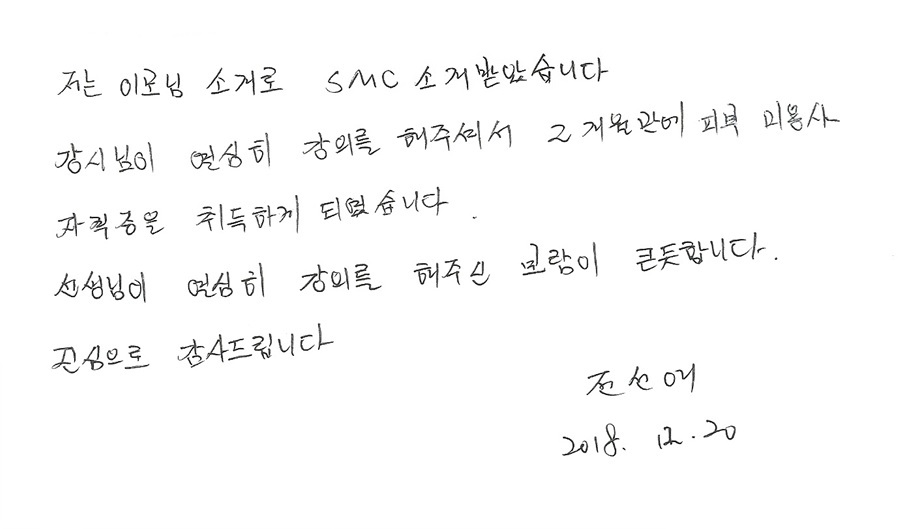 저는 이모님 소개로 SMC 소개받았습니다
강사님이 열심히 강의를 해주셔서 2개월만에 피부 미용사
자격증을 취득하게 되었습니다.
선생님이 열심히 강의를 해주신 보람이 큰듯합니다.
진심으로 감사드립니다
전선애
2018. 12. 20